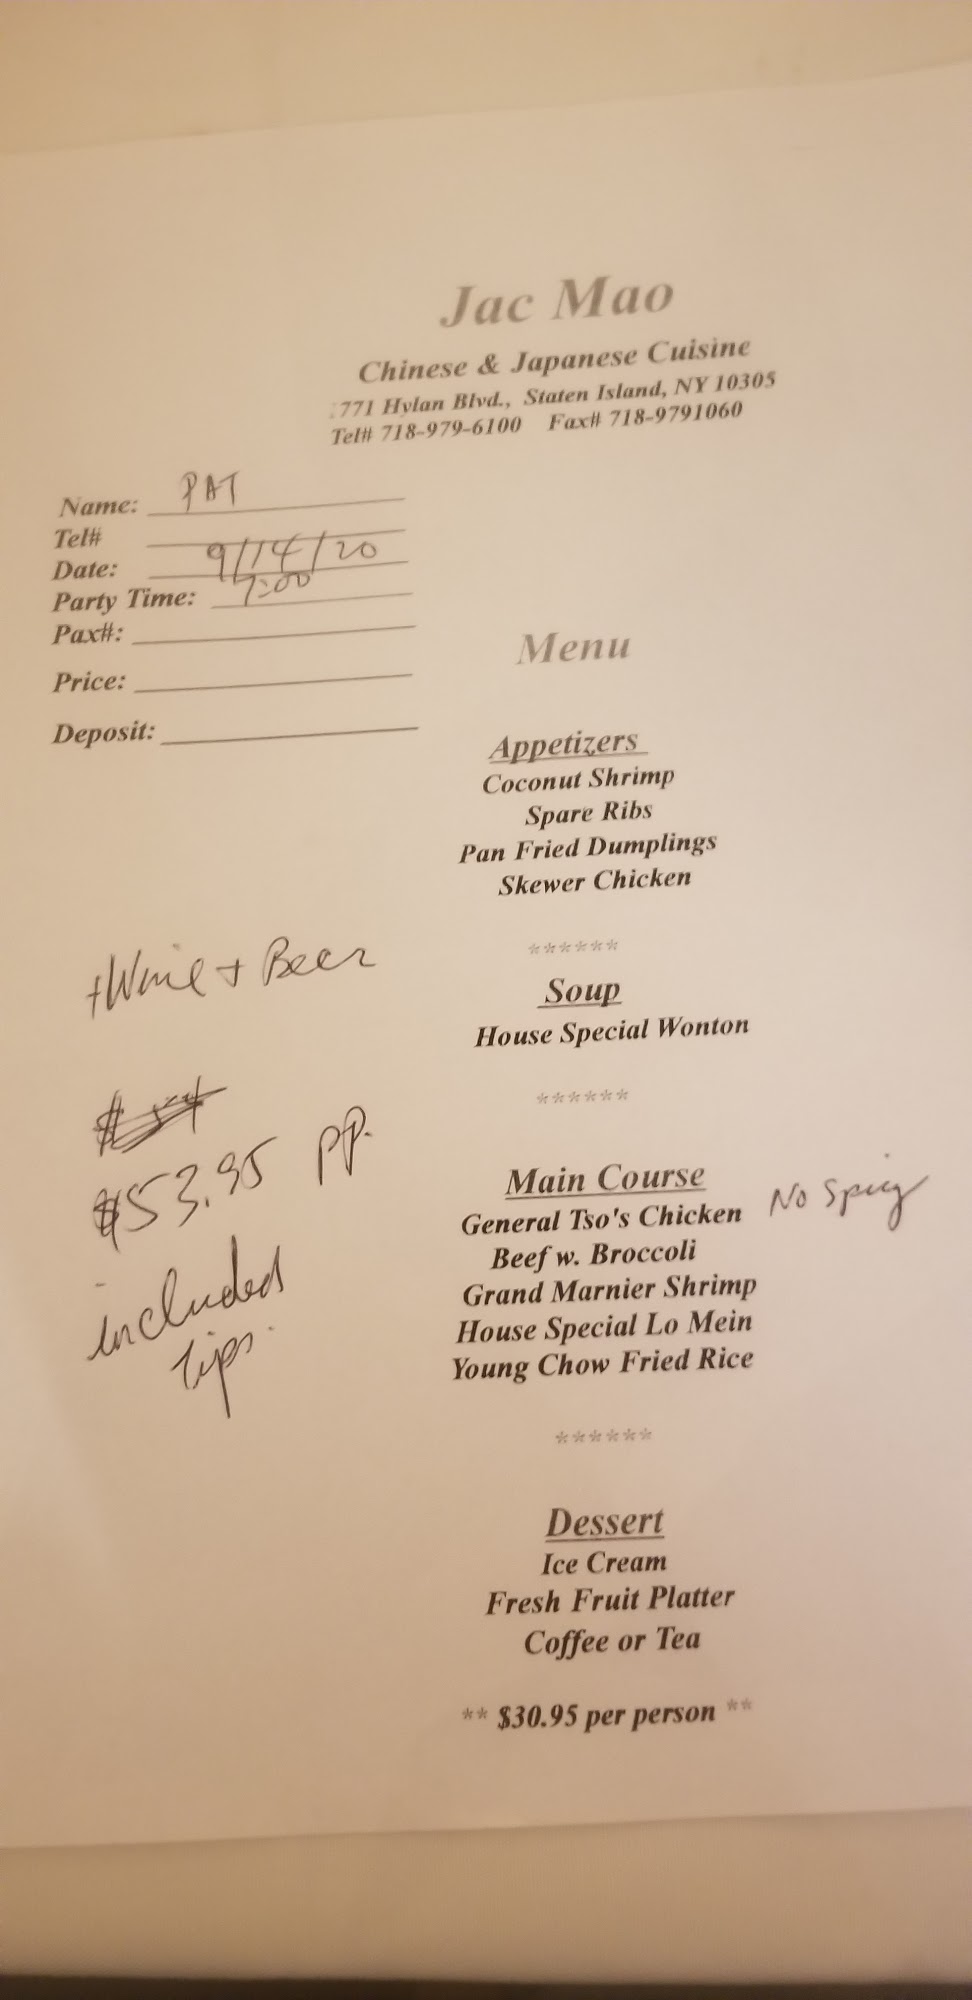 Jac Mao
Chinese & Japanese Cuisine
771 Hylan Blvd., Staten Island, NY 10305
Tel# 718-979-6100 Fax# 718-9791060
Name: PAT
Tel#
Date: 9/14/20
Party Time: 7:00
Pax#:
Price:
Deposit:
Menu
Appetizers
Coconut Shrimp
Spare Ribs
Pan Fried Dumplings
Skewer Chicken
******
+Wine + Beer
Soup
House Special Wonton
******
$53.95 pp.
included
tips.
Main Course
General Tso's Chicken No Spicy
Beef w. Broccoli
Grand Marnier Shrimp
House Special Lo Mein
Young Chow Fried Rice
******
Dessert
Ice Cream
Fresh Fruit Platter
Coffee or Tea
** $30.95 per person **